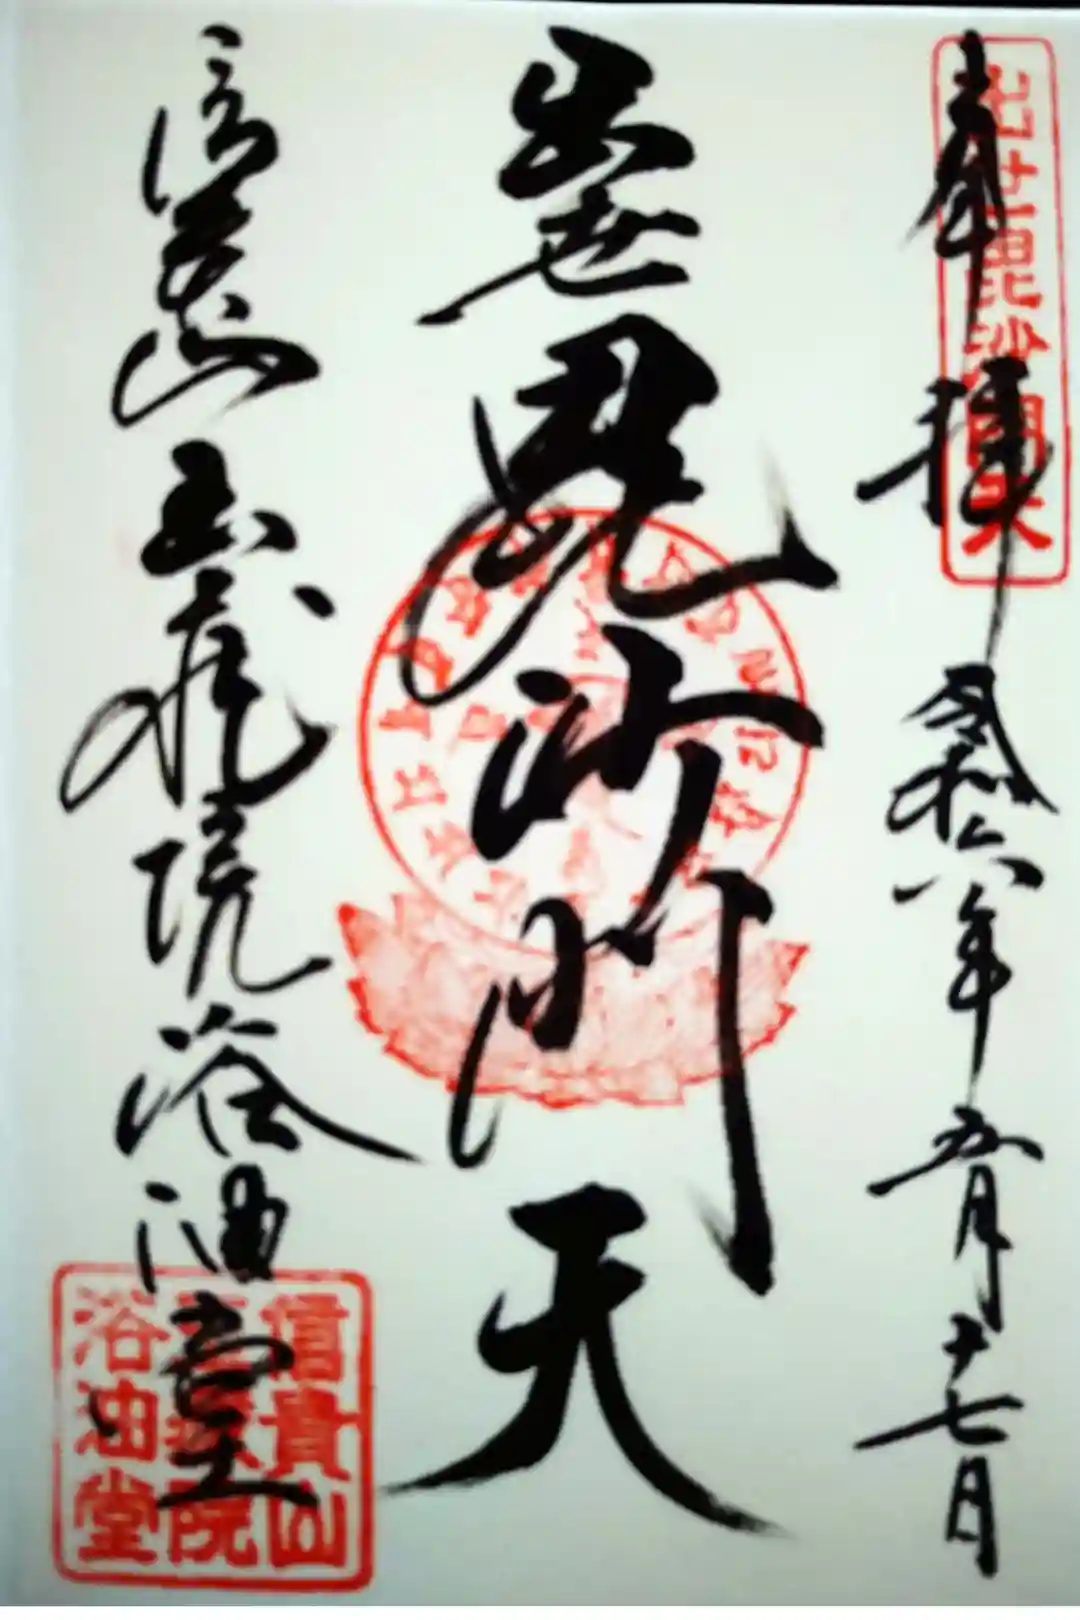 奉拝
令和六年五月十七日
出世毘沙門天
出世毘沙門天
信貴山玉蔵院浴油堂
信貴山
玉蔵院
浴油堂